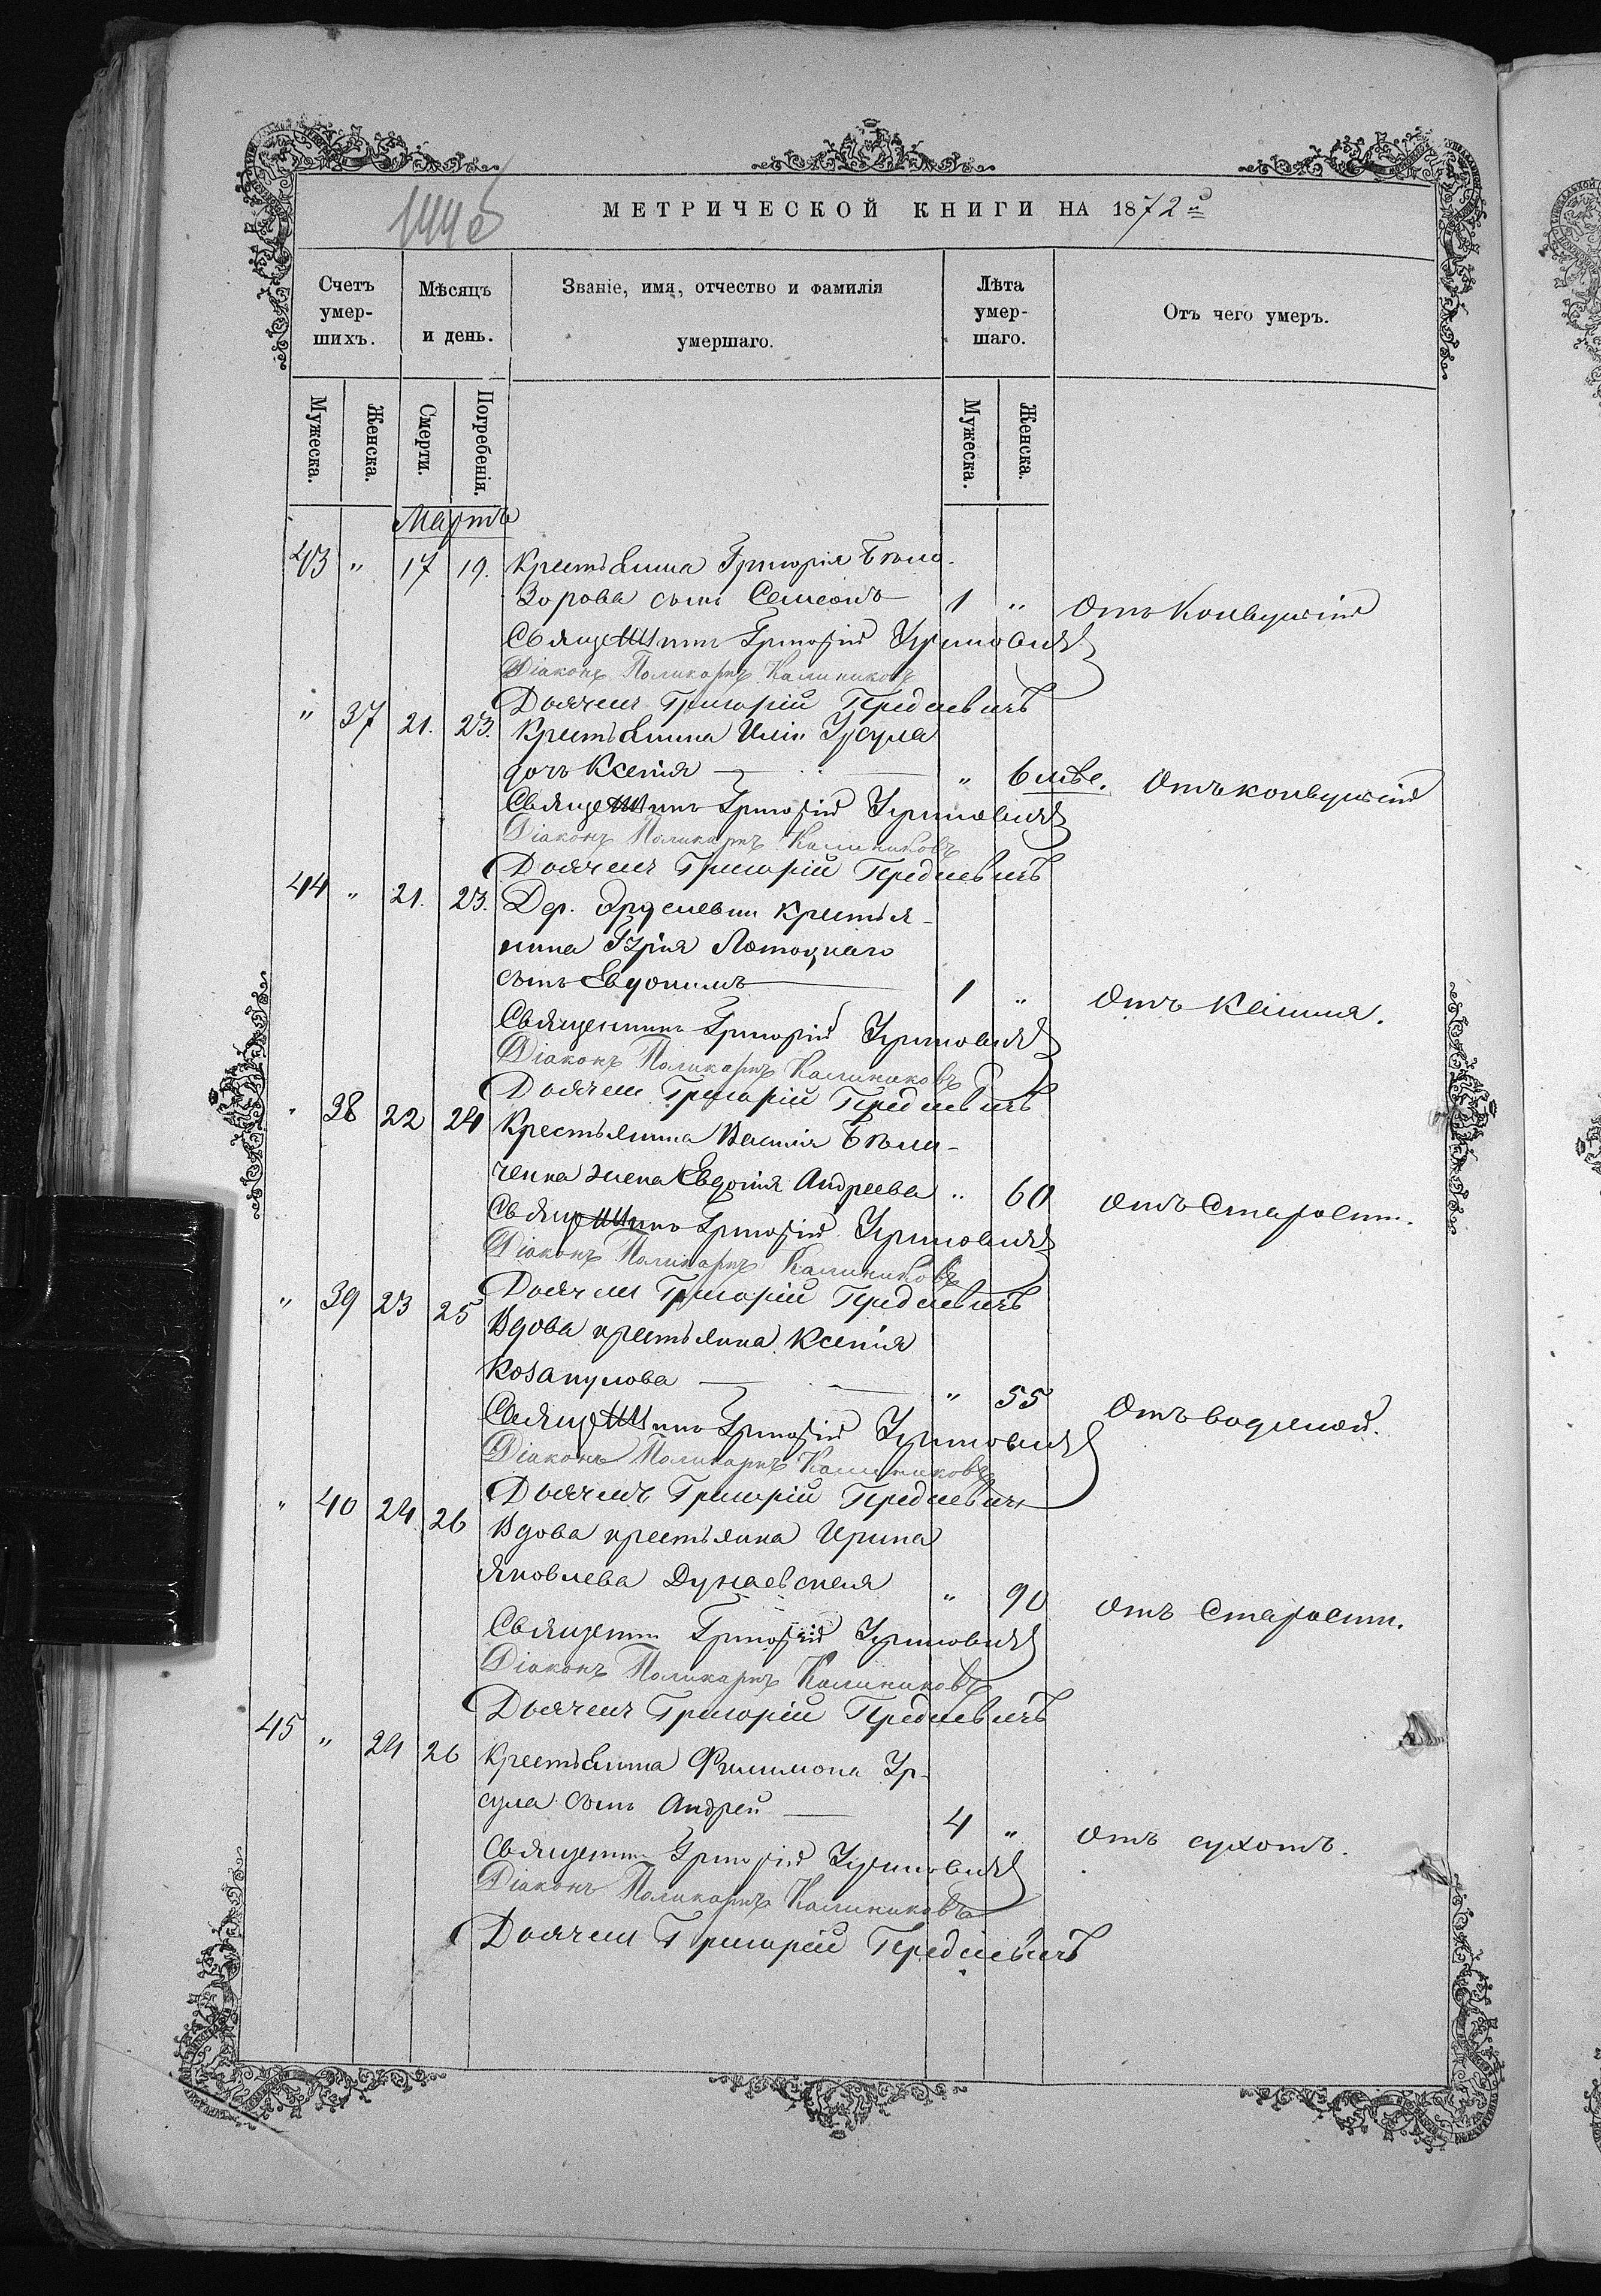 МЕТРИЧЕСКОЙ КНИГИ НА 1872й
Счетъ умер-шихъ.
Мѣсяцъ и день.
Званіе, имя, отчество и фамилія умершаго.
Лѣта умер-шаго.
Отъ чего умеръ.
Мужеска.
Женска.
Смерти.
Погребенія.
Мужеска.
Женска.
Мартъ
43 " 17 19. Крестьянина Григорія Бѣло-
зорова сынъ Семеонъ 1 " Отъ Конвульсій
Священникъ Григорій
Діаконъ Поликарпъ Калиниковъ
Дьячекъ Григорій
" 37 21. 23. Крестьянина Иліи Урсула
дочь Ксенія " 6 мѣс. Отъ конвульсій
Священникъ Григорій
Діаконъ Поликарпъ Калиниковъ
Дьячекъ Григорій
44 " 21. 23. Дер. крестья-
нина Лотоцкаго
сынъ Евдокимъ 1 " Отъ Кашля.
Священникъ Григорій
Діаконъ Поликарпъ Калиниковъ
Дьячекъ Григорій
" 38 22 24 Крестьянина Василія Бѣли-
ченка жена Евдокія Андреева " 60 Отъ Старости.
Священникъ Григорій
Діаконъ Поликарпъ Калиниковъ
Дьячекъ Григорій
" 39 23 25 Вдова крестьянка Ксенія
Козакулова " 55 Отъ водяной.
Священникъ Григорій
Діаконъ Поликарпъ Калиниковъ
Дьячекъ Григорій
" 40 24 26 Вдова крестьянка Ирина
Яковлева Дунаевская " 90 Отъ Старости.
Священникъ Григорій
Діаконъ Поликарпъ Калиниковъ
Дьячекъ Григорій
45 " 24 26 Крестьянина Филимона Ур-
сула сынъ Андрей 4 " Отъ сухотъ.
Священникъ Григорій
Діаконъ Поликарпъ Калиниковъ
Дьячекъ Григорій